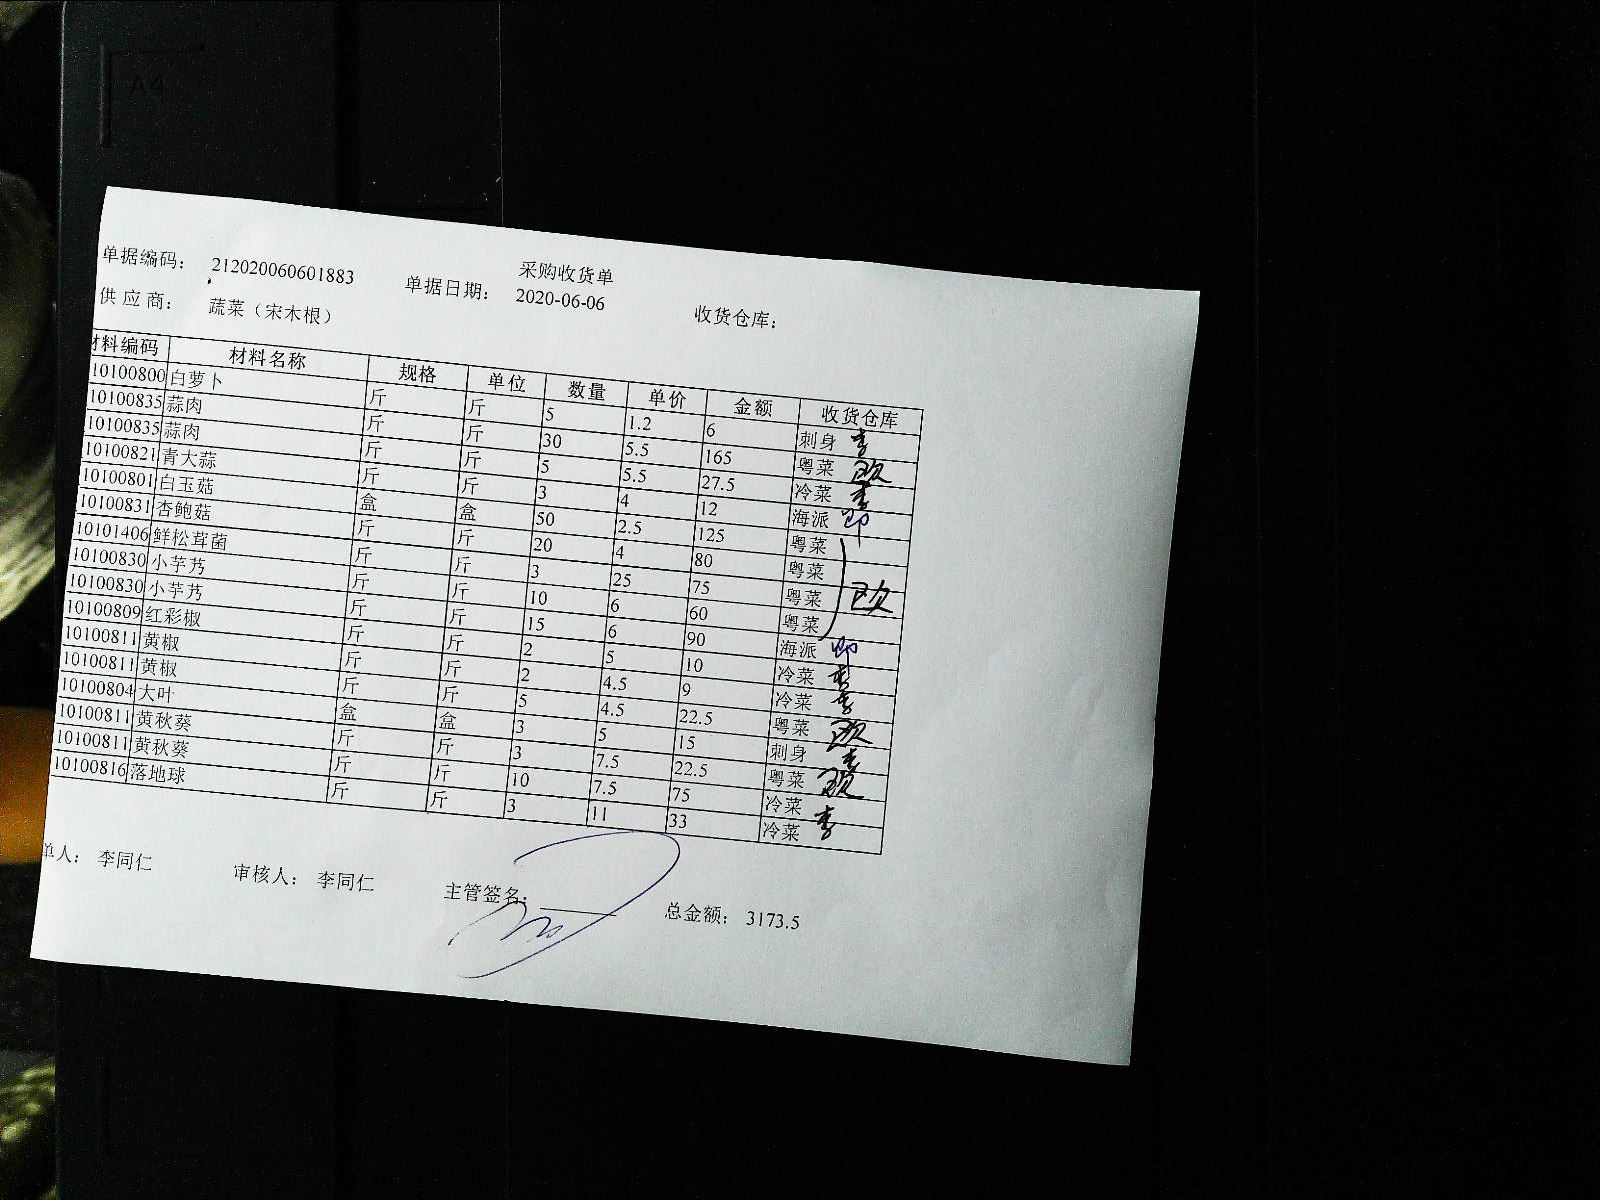 采购收货单
单据编码： 212020060601883 单据日期： 2020-06-06 收货仓库：
供应商： 蔬菜（宋木根）
材料编码 材料名称 规格 单位 数量 单价 金额 收货仓库
10100800 白萝卜 斤 斤 5 1.2 6 刺身 李
10100835 蒜肉 斤 斤 30 5.5 165 粤菜 欧
10100835 蒜肉 斤 斤 5 5.5 27.5 冷菜 李
10100821 青大蒜 斤 斤 3 4 12 海派
10100801 白玉菇 盒 盒 50 2.5 125 粤菜
10100831 杏鲍菇 斤 斤 20 4 80 粤菜
10101406 鲜松茸菌 斤 斤 3 25 75 粤菜 欧
10100830 小芋艿 斤 斤 10 6 60 粤菜
10100830 小芋艿 斤 斤 15 6 90 海派
10100809 红彩椒 斤 斤 2 5 10 冷菜 李
10100811 黄椒 斤 斤 2 4.5 9 冷菜 李
10100811 黄椒 斤 斤 5 4.5 22.5 粤菜 欧
10100804 大叶 盒 盒 3 5 15 刺身 李
10100811 黄秋葵 斤 斤 3 7.5 22.5 粤菜 欧
10100811 黄秋葵 斤 斤 10 7.5 75 冷菜
10100816 落地球 斤 斤 3 11 33 冷菜 李
单人： 李同仁 审核人： 李同仁 主管签名： 总金额： 3173.5